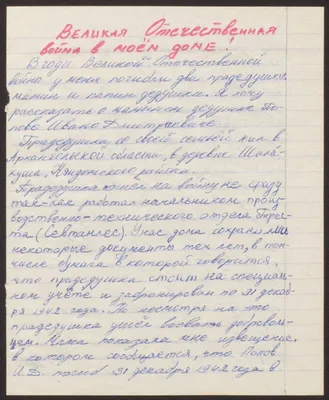 Великая Отечественная
война в моём доме.
В годы Великой Отечественной
войны у меня погибли два прадедушки,
мамин и папин дедушка. Я хочу
рассказать о мамином дедушке По-
пове Иване Дмитриевиче.
Прадедушка со своей семьёй жил в
Архангельской области, в деревне Шала-
куша, Няндомского района.
Прадедушка пошёл на войну не сразу
так-как работал начальником произ-
водственно-технического отдела Трес-
та (Севтранлес). У нас дома сохранились
некоторые документы тех лет, в том
числе бумага в которой говорится,
что прадедушка стоит на специаль-
ном учёте и забронирован по 31 декаб-
ря 1942 года. Не посмотря на это
прадедушка ушёл воевать доброволь-
цем. Мама показала мне извещение,
в котором сообщается, что Попов
И.Д. погиб 31 декабря 1942 года в